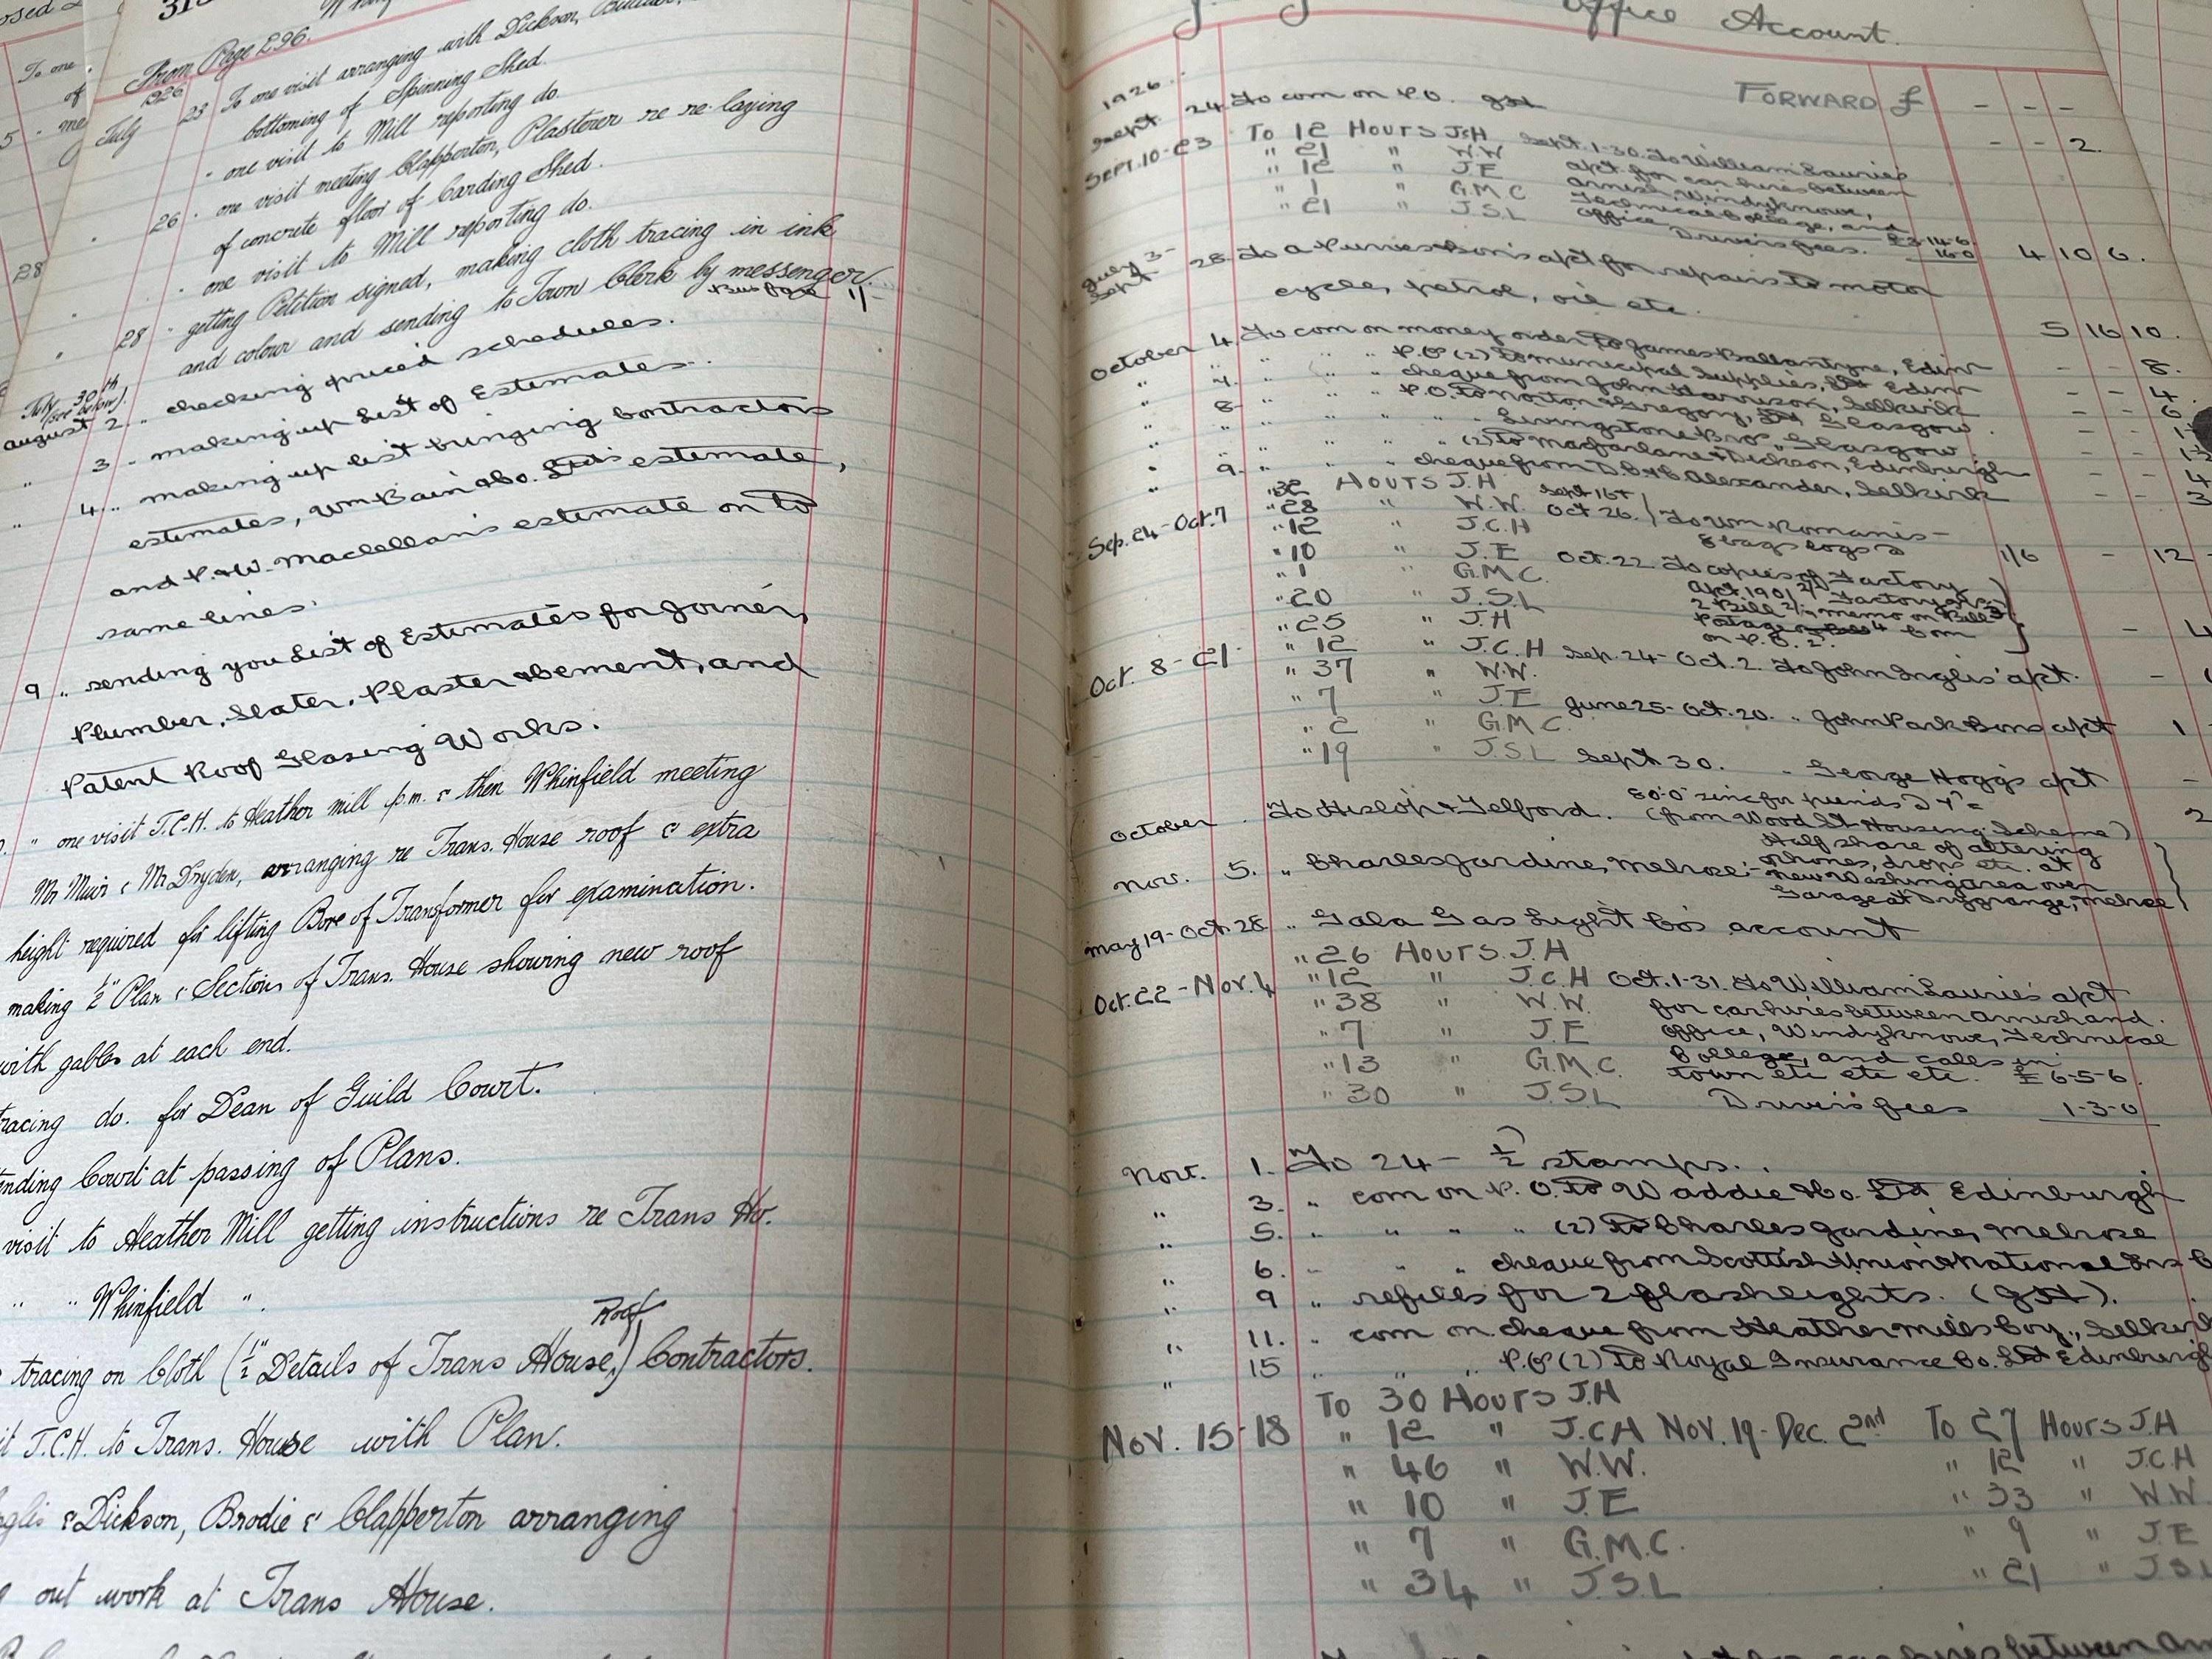 From Page 296.
1926
July 23 To one visit arranging with Dickson, Builder,
bottoming of Spinning Shed.
" one visit to Mill reporting do.
" 26 " one visit meeting Clapperton, Plasterer re re-laying
of concrete floor of Carding Shed.
" one visit to Mill reporting do.
" 28 " getting Petition signed, making cloth tracing in ink
and colour and sending to Town Clerk by messenger.
Bus fare 1/-
July 30th (see below).
August 2. " checking priced schedules.
" 3 " making up List of Estimates.
" 4. " making up list bringing Contractors
estimates, Wm Bain & Co. Ltd's estimate,
and P. & W. Maclellan's estimate on to
same lines.
9 " sending you List of Estimates for Joiner,
Plumber, Slater, Plaster & Cement, and
Patent Roof Glazing Works.
" one visit J.C.H. to Heather mill p.m. & then Whinfield meeting
Mr Muir & Mr Dryden, arranging re Trans. House roof & extra
height required for lifting Core of Transformer for examination.
making ½" Plan & Sections of Trans. House showing new roof
with gables at each end.
tracing do. for Dean of Guild Court.
attending Court at passing of Plans.
visit to Heather Mill getting instructions re Trans Ho.
" " Whinfield ".
tracing on Cloth (½" Details of Trans House, Roof) Contractors.
J.C.H. to Trans. House with Plan.
& Dickson, Brodie & Clapperton arranging
out work at Trans House.
Office Account.
FORWARD £ - - -
1926.
Sept. 24 To com on P.O. - - 2.
SEPT. 10-23 To 12 HOURS J.H
" 21 " W.W
" 12 " J.E
" 1 " G.M.C
" 21 " J.S.L
Sept. 1-30. To William Laurie's
a/ct. for car hires between
Arnish, Windyknowe,
Technical College, and
Office £3-14-6.
Driver's fees. 16-0 4 10 6.
July 3-
Sept 28 To A Purves & Son's a/ct for repairs to motor
cycle, petrol, oil etc. 5 16 10.
October 4. To com on money order to James Ballantyne, Edinr - - 8.
" " " " P.O (2) to Municipal Supplies, Ltd Edinr - - 4.
" 7. " " " cheque from John Harrison, Selkirk - - 6
" 8 " " " P.O. to Norton & Gregory, Ltd Glasgow.
" " " " " Livingstone Bros Glasgow
" " " " " (2) to Macfarlane & Dickson, Edinburgh - - 4
" 9. " " " cheque from D.C. & C. Alexander, Selkirk - - 3
Sep. 24-Oct. 7 " 32 HOURS J.H
" 28 " W.W.
" 12 " J.C.H
" 10 " J.E
" 1 " G.M.C.
" 20 " J.S.L
Sept 16 +
Oct 26. } To Wm Romanis-
8 bags logs @ 1/6 - 12
Oct. 22. To copies of Factory
Act. 1901
Oct. 8-21 " 25 " J.H
" 12 " J.C.H
" 37 " W.W.
" 7 " J.E
" 2 " G.M.C.
" 19 " J.S.L
Sep. 24-Oct. 2. To John Inglis' a/ct.
June 25-Oct. 20. " John Park & Sons a/ct 1
Sept 30. " George Hogg's a/ct
October To Hislop & Telford.
(from Wood St Housing Scheme)
Nov. 5. " Charles Jardine, Melrose:- Half share of altering
phones, drops etc. at
new Washing area over
Garage at Drygrange, Melrose
May 19-Oct. 28 " Gala Gas Light Co's account
Oct. 22-Nov. 4 " 26 HOURS J.H
" 12 " J.C.H
" 38 " W.W.
" 7 " J.E
" 13 " G.M.C.
" 30 " J.S.L
Oct. 1-31. To William Laurie's a/ct
for car hires between Arnish and
office, Windyknowe, Technical
College, and calls in
town etc etc etc. £6-5-6.
Driver's fees 1-3-0
Nov. 1. To 24 - ½ stamps.
" 3. " com on P.O. to Waddie & Co. Ltd Edinburgh
" 5. " " " " (2) to Charles Jardine, Melrose
" 6. " " " cheque from Scottish Union & National Ins C
" 9 " refills for 2 flashlights.
" 11. " com on cheque from Heather Mills Coy., Selkirk
" 15 " " P.O (2) to Royal Insurance Co. Ltd Edinburgh
NOV. 15-18 TO 30 HOURS J.H
" 12 " J.C.H
" 46 " W.W.
" 10 " J.E
" 7 " G.M.C.
" 34 " J.S.L
NOV. 19-DEC. 2nd TO 27 HOURS J.H
" 12 " J.C.H
" 33 " W.W
" 9 " J.E
" 21 " J.S.L